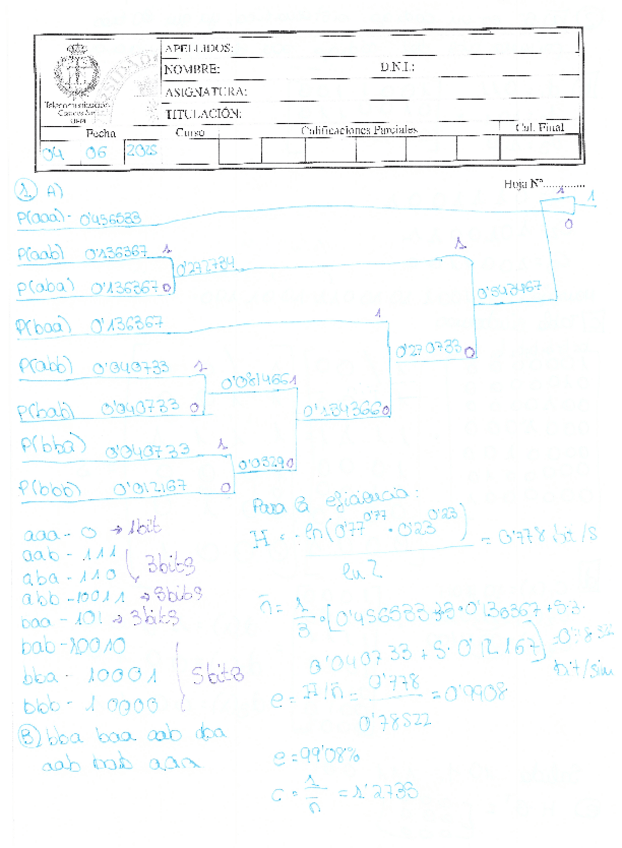 APELLIDOS:
NOMBRE: D.N.I.:
ASIGNATURA:
TITULACIÓN:
Fecha Curso Calificaciones Parciales Cal. Final
04 06 2025
Hoja Nº
1 A)
P(aaa) - 0'456533
1 1
0
P(aab) 0'136367 1
0'272734 1
P(aba) 0'136367 0
0'543467
P(baa) 0'136367
1
0'270733 0
P(abb) 0'040733 1
0'0814661
P(bab) 0'040733 0
0'1343660
P(bba) 0'040733 1
0'05290
P(bbb) 0'012167 0
Para la eficiencia:
aaa - 0 → 1bit
aab - 111
aba - 110
3bits
abb - 10011 → 5bits
baa - 101 → 3bits
bab - 10010
bba - 10001
bbb - 10000
5bits
H = - ln(0'77^0'77 · 0'23^0'23) / ln 2 = 0'778 bit/S
n̄ = 1/3 · [0'456533 + 3·3·0'136367 + 5·3·
0'040733 + 5·0'12167] =
bit/sim
e = H/n̄ = 0'778 / 0'78522 = 0'9908
e = 99'08%
c = 1/n̄ = 1'2733
B) bba baa aab aba
aab bab aaa